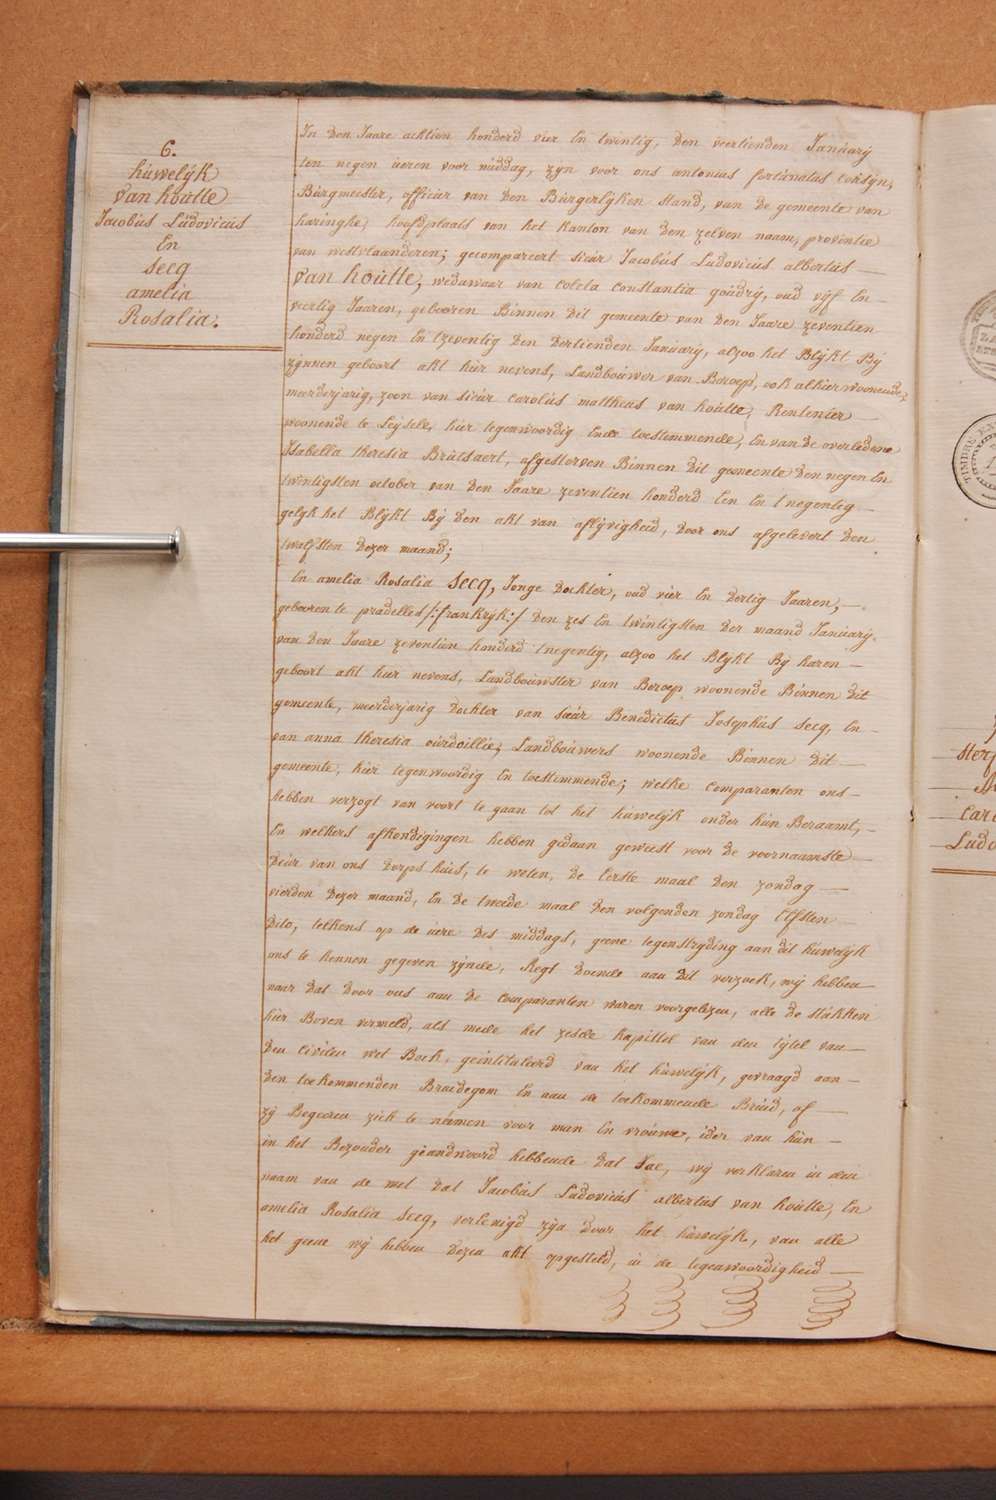 6.
huwelijk
van houtte
Jacobus Ludovicus
En
secq
amelia
Rosalia.
In den Jaare achtien honderd vier En twintig, den veertienden Januarij
ten negen ueren voor middag, zijn voor ons antonius fortunatus Corsijn,
Burgmeester, officier van den Burgerlijken stand, van de gemeente van
haringhe, hoofdplaats van het kanton van den zelven naam, provintie
van westvlaanderen; gecompareert sieur Jacobus Ludovicus albertus
van houtte, weduwaar van coleta constantia goudrij, oud vijf En
veertig Jaaren, gebooren Binnen dit gemeente van den Jaare zeventien
honderd negen En tzeventig den dertienden Januarij, alzoo het Blijkt Bij
zijnnen geboort akt hier nevens, Landbouwer van Beroep, ook alhier woonende,
meerderjarig, zoon van sieur carolus mattheus van houtte, Rentenier
woonende te Leijsele, hier tegenwoordig Ende toestemmende, En van de overledene
Isabella theresia Brutsaert, afgestorven Binnen dit gemeente den negen En
twintigsten october van den Jaare zeventien honderd Een En tnegentig
gelijk het Blijkt Bij den akt van aflijvigheid, door ons afgelevert den
twalfsten dezer maand;
En amelia Rosalia secq, Jonge dochter, oud vier En dertig Jaaren,
gebooren te pradelles /:frankrijk:/ den zes En twintigsten der maand Januarij
van den Jaare zeventien honderd tnegentig, alzoo het Blijkt Bij haren
geboort akt hier nevens, Landbouwster van Beroep woonende Binnen dit
gemeente, meerderjarig dochter van sieur Benedictus Josephus secq, En
van anna theresia ourdoillie, Landbouwers woonende Binnen dit
gemeente, hier tegenwoordig En toestemmende; welke comparanten ons
hebben verzogt van voort te gaan tot het huwelijk onder hun Beraamt,
En welkers afkondigingen hebben gedaan geweest voor de voornaamste
deur van ons dorps huis, te weten, de Eerste maal den zondag
vierden dezer maand, En de tweede maal den volgenden zondag Elfsten
dito, telkens op de uere des middags, geene tegenstrijding aan dit huwelijk
ons te kennen gegeven zijnde, Regt doende aan dit verzoek, wij hebben
naar dat door ons aan de comparanten waren voorgelezen, alle de stukken
hier Boven vermeld, als mede het zesde kapittel van den tijtel van
den civilen wet Boek, geintituleerd van het huwelijk, gevraagd aan
den toekommenden Bruidegom En aan de toekommende Bruid, of
zij Begeeren zich te neemen voor man En vrouwe, ider van hun
in het Bezonder geandwoord hebbende dat Jae, wij verklaren in den
naam van de wet dat Jacobus Ludovicus albertus van houtte, En
amelia Rosalia secq, verEenigd zijn door het huwelijk, van alle
het geene wij hebben dezen akt opgesteld, in de tegenwoordigheid
TIMBRE
Ludo